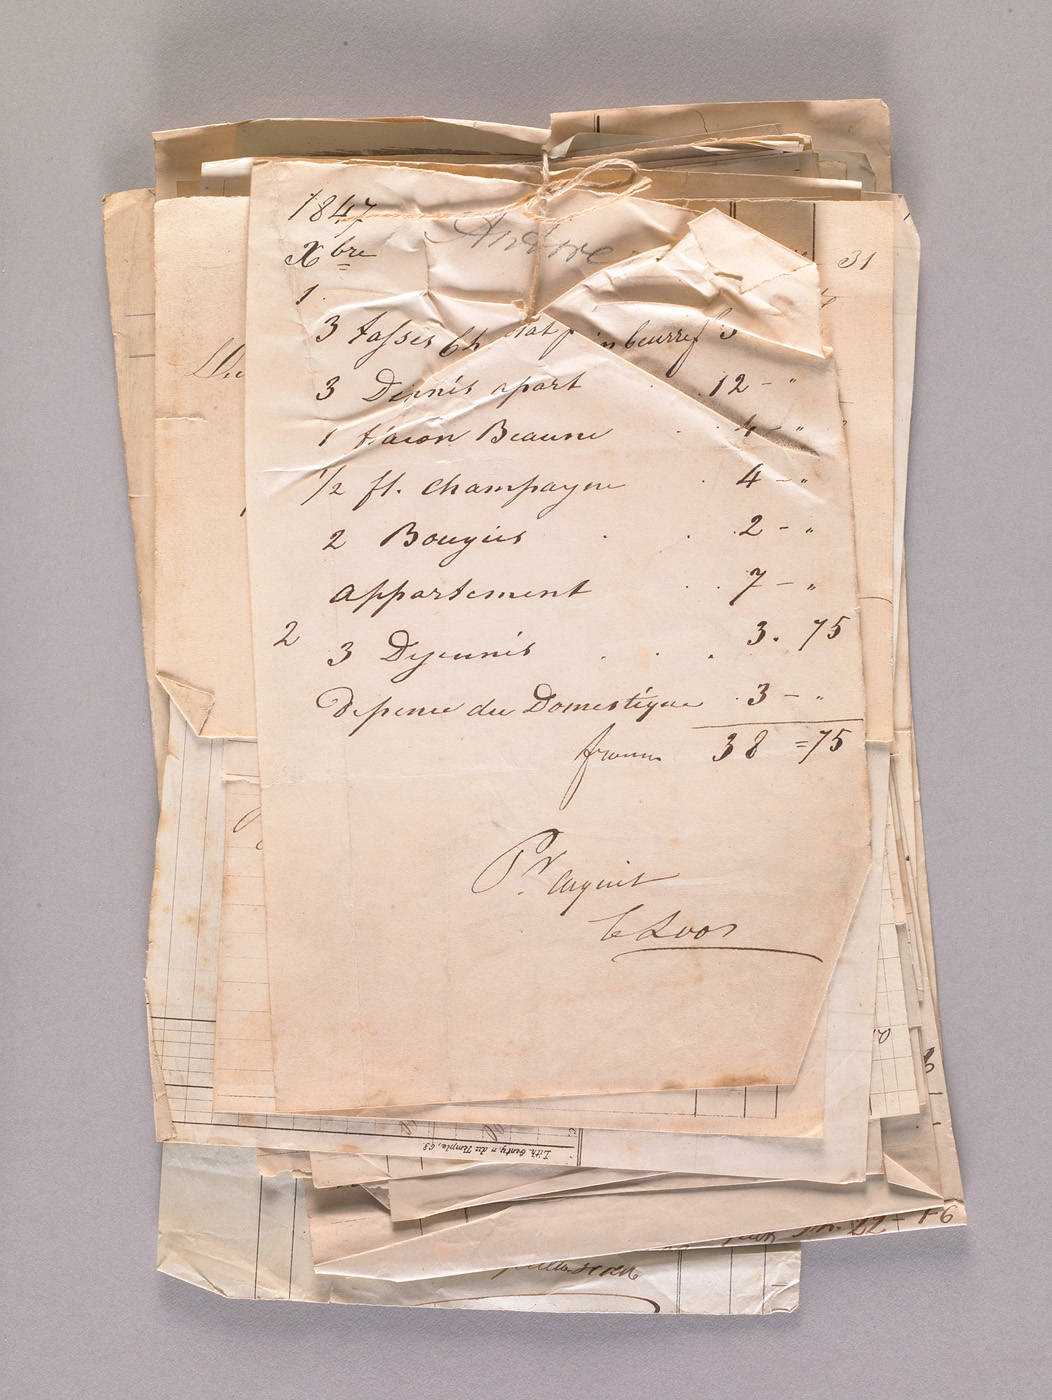 1847
Xbre
1.
3 tasses Ch 3
3 Dinnés apart . 12 - "
1 flacon Beaune . . 4 - "
1/2 fl. champagne . 4 - "
2 Bougies . . 2 - "
appartement . . 7 - "
2 3 Dejeunés . . . 3. 75
Depence du Domestique . 3 - "
francs 38 = 75
Pr acquit
31
Lith. du Temple, 63